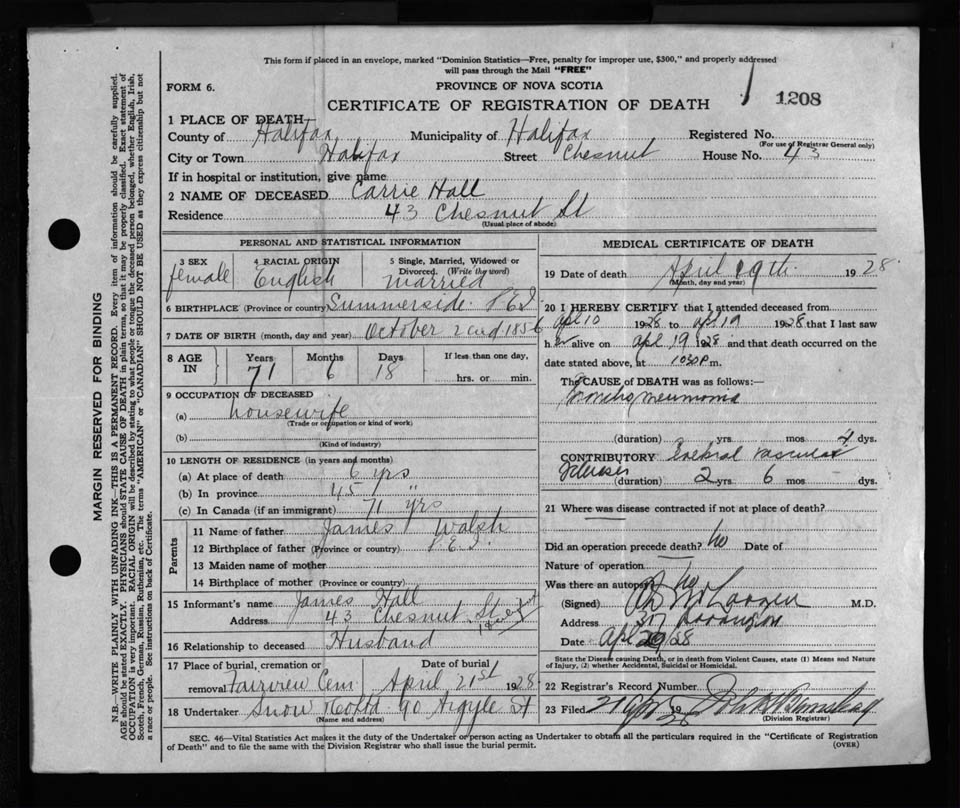 This form if placed in an envelope, marked "Dominion Statistics—Free, penalty for improper use, $300," and properly addressed
will pass through the Mail "FREE"
FORM 6.
PROVINCE OF NOVA SCOTIA
CERTIFICATE OF REGISTRATION OF DEATH
1208
1 PLACE OF DEATH
County of Halifax Municipality of Halifax Registered No.
(For use of Registrar General only)
City or Town Halifax Street Chesnut House No. 43
If in hospital or institution, give name
2 NAME OF DECEASED Carrie Hall
Residence 43 Chesnut St
(Usual place of abode)
PERSONAL AND STATISTICAL INFORMATION
3 SEX female
4 RACIAL ORIGIN English
5 Single, Married, Widowed or Divorced. (Write the word) married
6 BIRTHPLACE (Province or country) Summerside P E I
7 DATE OF BIRTH (month, day and year) October 2nd 1856
8 AGE IN Years Months Days If less than one day,
71 6 18 hrs. or min.
9 OCCUPATION OF DECEASED
(a) housewife
(Trade or occupation or kind of work)
(b)
(Kind of industry)
10 LENGTH OF RESIDENCE (in years and months)
(a) At place of death 6 yrs
(b) In province 45 "
(c) In Canada (if an immigrant) 71 yrs
Parents
11 Name of father James Walsh
12 Birthplace of father (Province or country) P.E.I.
13 Maiden name of mother
14 Birthplace of mother (Province or country)
15 Informant's name James Hall
Address 43 Chesnut St
16 Relationship to deceased Husband
17 Place of burial, cremation or Date of burial
removal Fairview Cem April 21st 1928
18 Undertaker Snow & Co Ltd 90 Argyle St
(Name and address)
MEDICAL CERTIFICATE OF DEATH
19 Date of death April 19th 1928.
(Month, day and year)
20 I HEREBY CERTIFY that I attended deceased from
Apl 10 1928 to apl 19 1928 that I last saw
her alive on apl 19 1928 and that death occurred on the
date stated above, at 1030 P m.
The CAUSE OF DEATH was as follows:—
Broncho pneumonia
(duration) yrs mos 4 dys.
CONTRIBUTORY Cerebral vascular
disease
(duration) 2 yrs 6 mos dys.
21 Where was disease contracted if not at place of death?
Did an operation precede death? no Date of
Nature of operation
Was there an autopsy? no
(Signed) M.D.
Address 307
Date Apl 20 28
State the Disease causing Death, or in death from Violent Causes, state (1) Means and Nature
of Injury, (2) whether Accidental, Suicidal or Homicidal.
22 Registrar's Record Number
23 Filed 19 28
(Division Registrar)
SEC. 46—Vital Statistics Act makes it the duty of the Undertaker or person acting as Undertaker to obtain all the particulars required in the "Certificate of Registration
of Death" and to file the same with the Division Registrar who shall issue the burial permit.
(OVER)
MARGIN RESERVED FOR BINDING
N.B.—WRITE PLAINLY WITH UNFADING INK—THIS IS A PERMANENT RECORD. Every item of information should be carefully supplied.
AGE should be stated EXACTLY. PHYSICIANS should STATE CAUSE OF DEATH in plain terms, so that it may be properly classified. Exact statement of
OCCUPATION is very important. RACIAL ORIGIN will be described by stating to what people or tongue the deceased person belonged, whether English, Irish,
Scotch, French, German, Russian, Ruthenian, etc. The terms "AMERICAN" or "CANADIAN" SHOULD NOT BE USED as they express citizenship but not
a race or people. See instructions on back of Certificate.